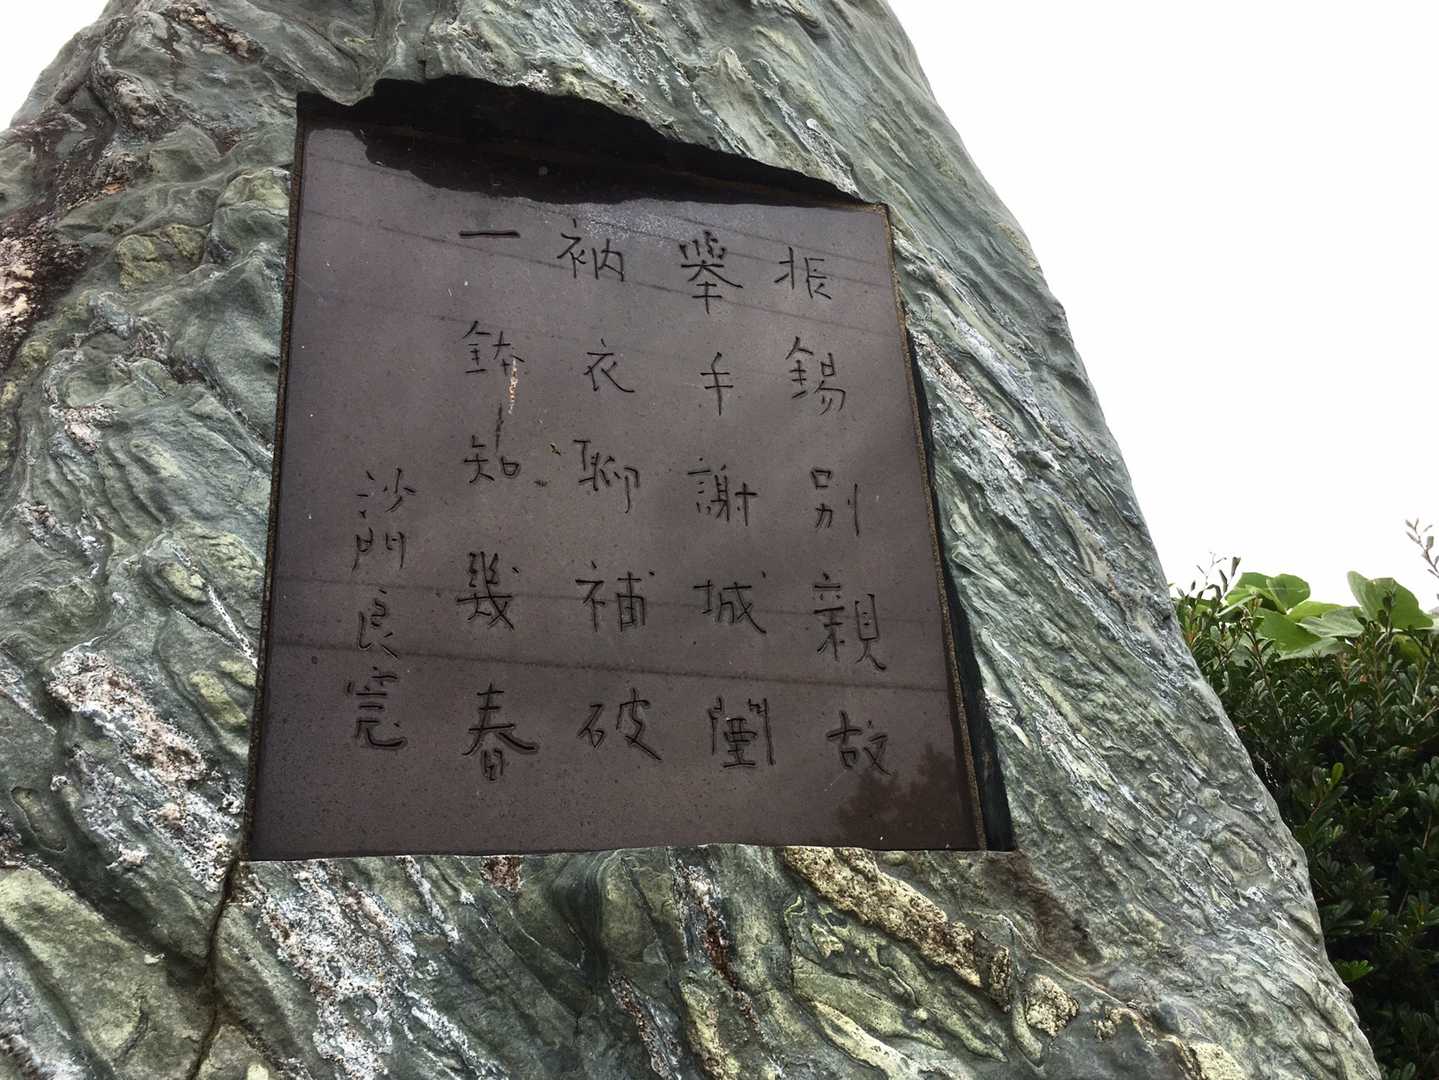 振錫別親故
挙手謝城闉
衲衣聊補破
一鉢知幾春
沙門良寛